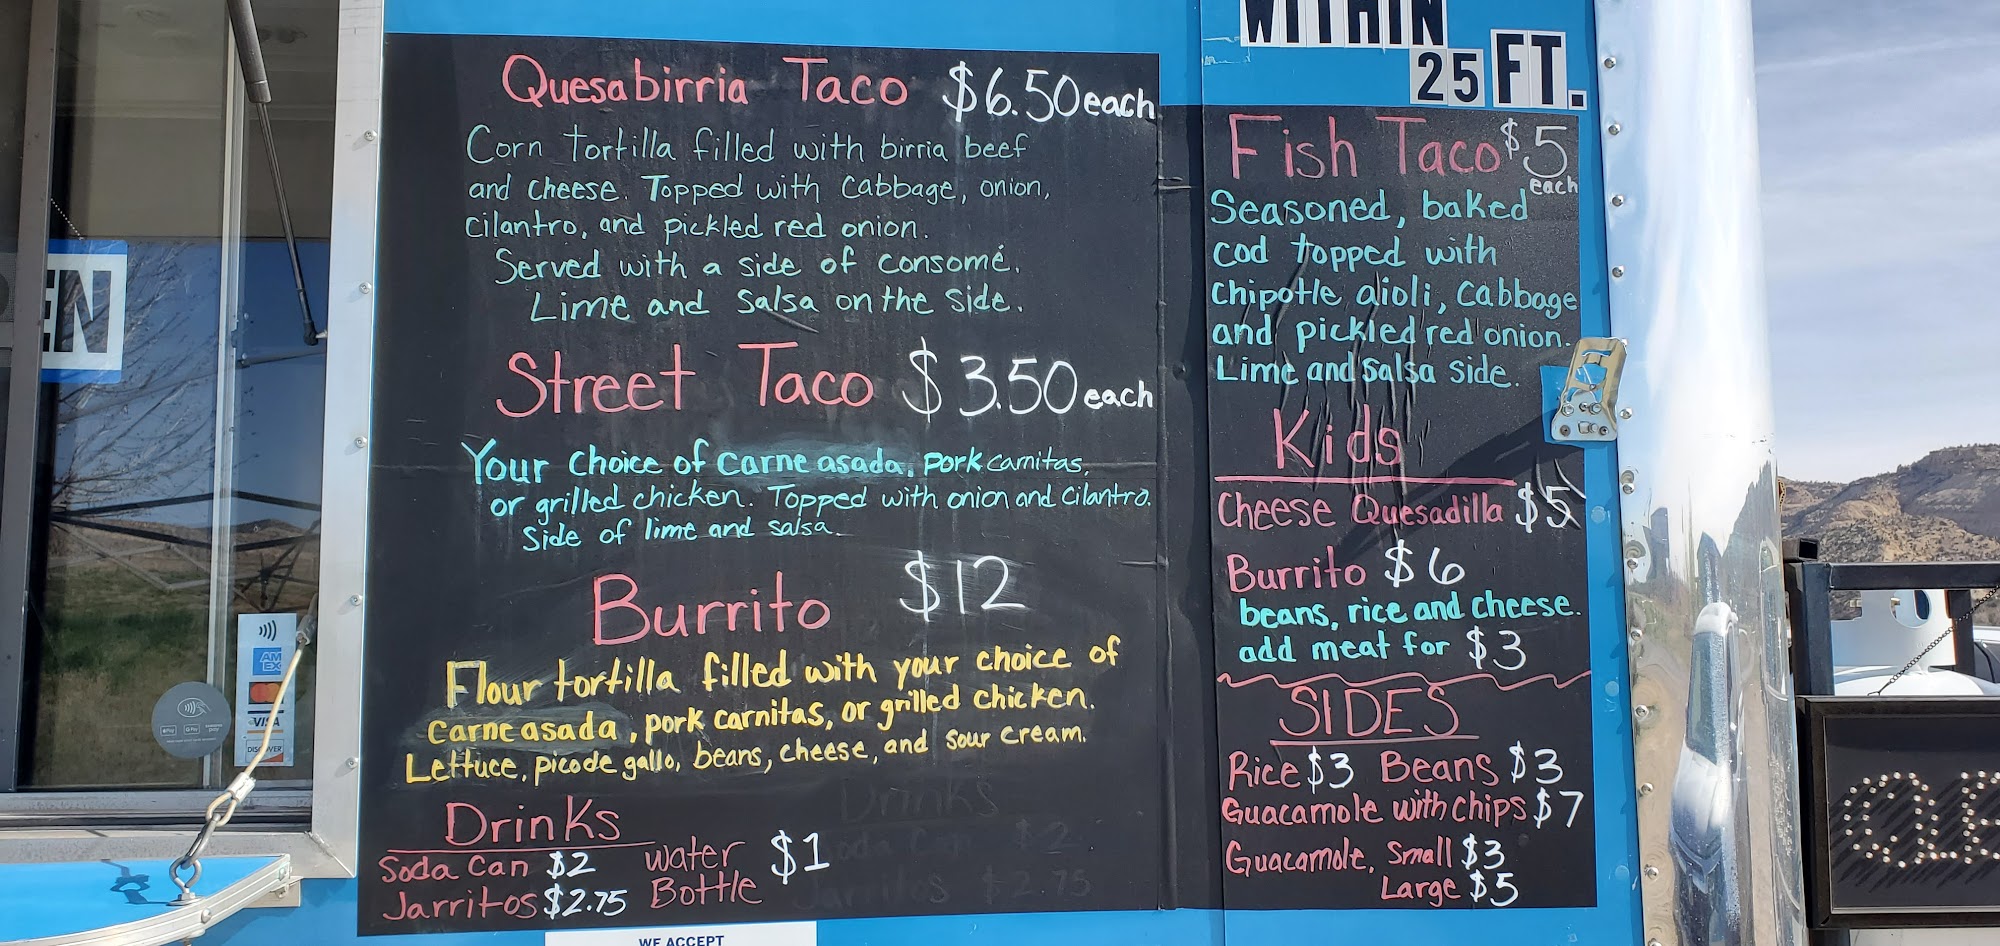 Quesabirria Taco $6.50 each
Corn tortilla filled with birria beef
and cheese. Topped with cabbage, onion,
cilantro, and pickled red onion.
Served with a side of consomé.
Lime and salsa on the side.
Street Taco $3.50 each
Your choice of carne asada, pork carnitas,
or grilled chicken. Topped with onion and cilantro.
Side of lime and salsa.
Burrito $12
Flour tortilla filled with your choice of
carne asada, pork carnitas, or grilled chicken.
Lettuce, pico de gallo, beans, cheese, and sour cream.
Drinks
Soda Can $2
Jarritos $2.75
Water
Bottle
$1
Drinks
Soda Can $2
Jarritos $2.75
WE ACCEPT
WITHIN
25 FT.
Fish Taco $5
each
Seasoned, baked
cod topped with
chipotle aioli, cabbage
and pickled red onion.
Lime and salsa side.
Kids
Cheese Quesadilla $5
Burrito $6
beans, rice and cheese.
add meat for $3
SIDES
Rice $3 Beans $3
Guacamole with chips $7
Guacamole, Small $3
Large $5
EN
AM
EX
VISA
DISCOVER